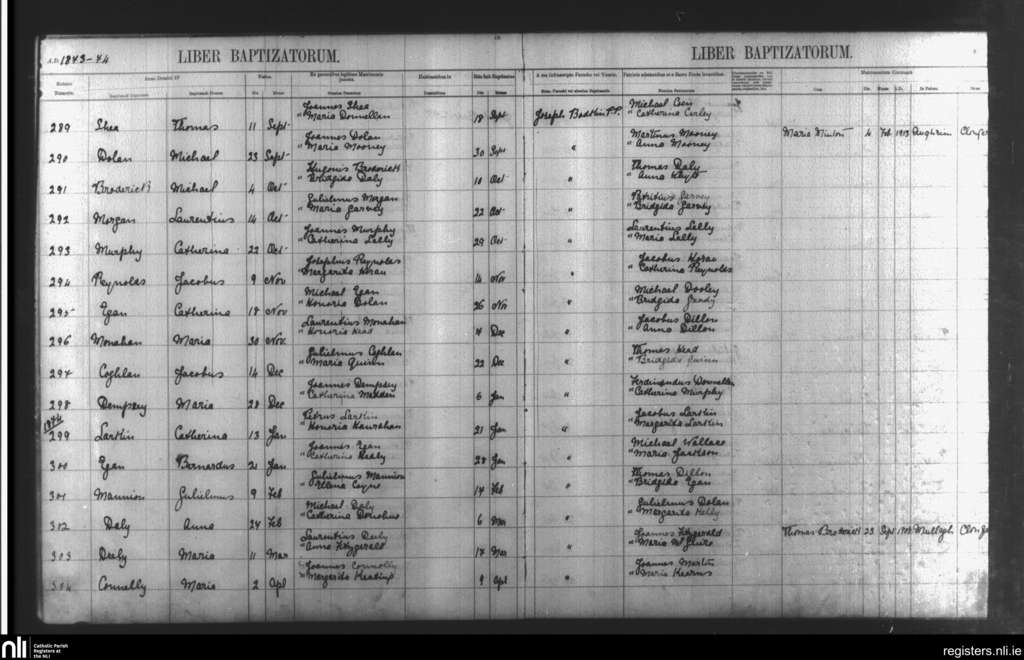 A.D. 1843-44 LIBER BAPTIZATORUM. LIBER BAPTIZATORUM.
Joannes Shea Michael
289 Shea Thomas 11 Sept " Maria Donnellan 18 Sept Joseph Bodkin P.P. " Catherina Curley
Joannes Dolan Martinus Mooney Maria 4 Feb 1913 Aughrim
290 Dolan Michael 23 Sept " Maria Mooney 30 Sept " " Anna Mooney
Hugonis Broderick Thomas Daly
291 Broderick Michael 4 Oct " Bridgida Daly 10 Oct " " Anna
Gulielmus Morgan Patritius Garvey
292 Morgan Laurentius 14 Oct " Maria Garvey 22 Oct " " Bridgida Garvey
Joannes Murphy Laurentius Lally
293 Murphy Catherina 22 Oct " Catherina Lally 29 Oct " " Maria Lally
Josephus Reynolds Jacobus Horan
294 Reynolds Jacobus 9 Nov Margarita Horan 14 Nov " " Catherina Reynolds
Michael Egan Michael Dooley
295 Egan Catherina 18 Nov " Honoria Dolan 26 Nov " " Bridgida
Laurentius Monahan Jacobus Dillon
296 Monahan Maria 30 Nov " Honoria Head 4 Dec " " Anna Dillon
Gulielmus Coghlan Thomas Head
297 Coghlan Jacobus 14 Dec " Maria Quinn 22 Dec " " Bridgida Quinn
Joannes Dempsey Ferdinandus Donnellan
298 Dempsey Maria 28 Dec " Catherina Madden 6 Jan " " Catherina Murphy
1844
Petrus Larkin Jacobus Larkin
299 Larkin Catherina 13 Jan " Honoria Hanrahan 21 Jan " " Margarita Larkin
Joannes Egan Michael Wallace
300 Egan Bernardus 21 Jan " Catherina Healy 28 Jan " Maria Jackson
Gulielmus Mannion Thomas Dillon
301 Mannion Gulielmus 9 Feb " Ellena Coyne 14 Feb " " Bridgida Egan
Michael Daly Gulielmus Dolan
302 Daly Anna 24 Feb " Catherina Donohue 6 Mar " " Margarita Kelly
Laurentius Deely Joannes Fitzgerald Thomas Broderick 23 Sept Mullagh
303 Deely Maria 11 Mar " Anna Fitzgerald 17 Mar " " Maria McGuire
Joannes Connolly Joannes Martin
304 Connelly Maria 2 Apl " Margarita Keating 9 Apl " " Maria Kearns
nli Catholic Parish
Registers at
the NLI
registers.nli.ie